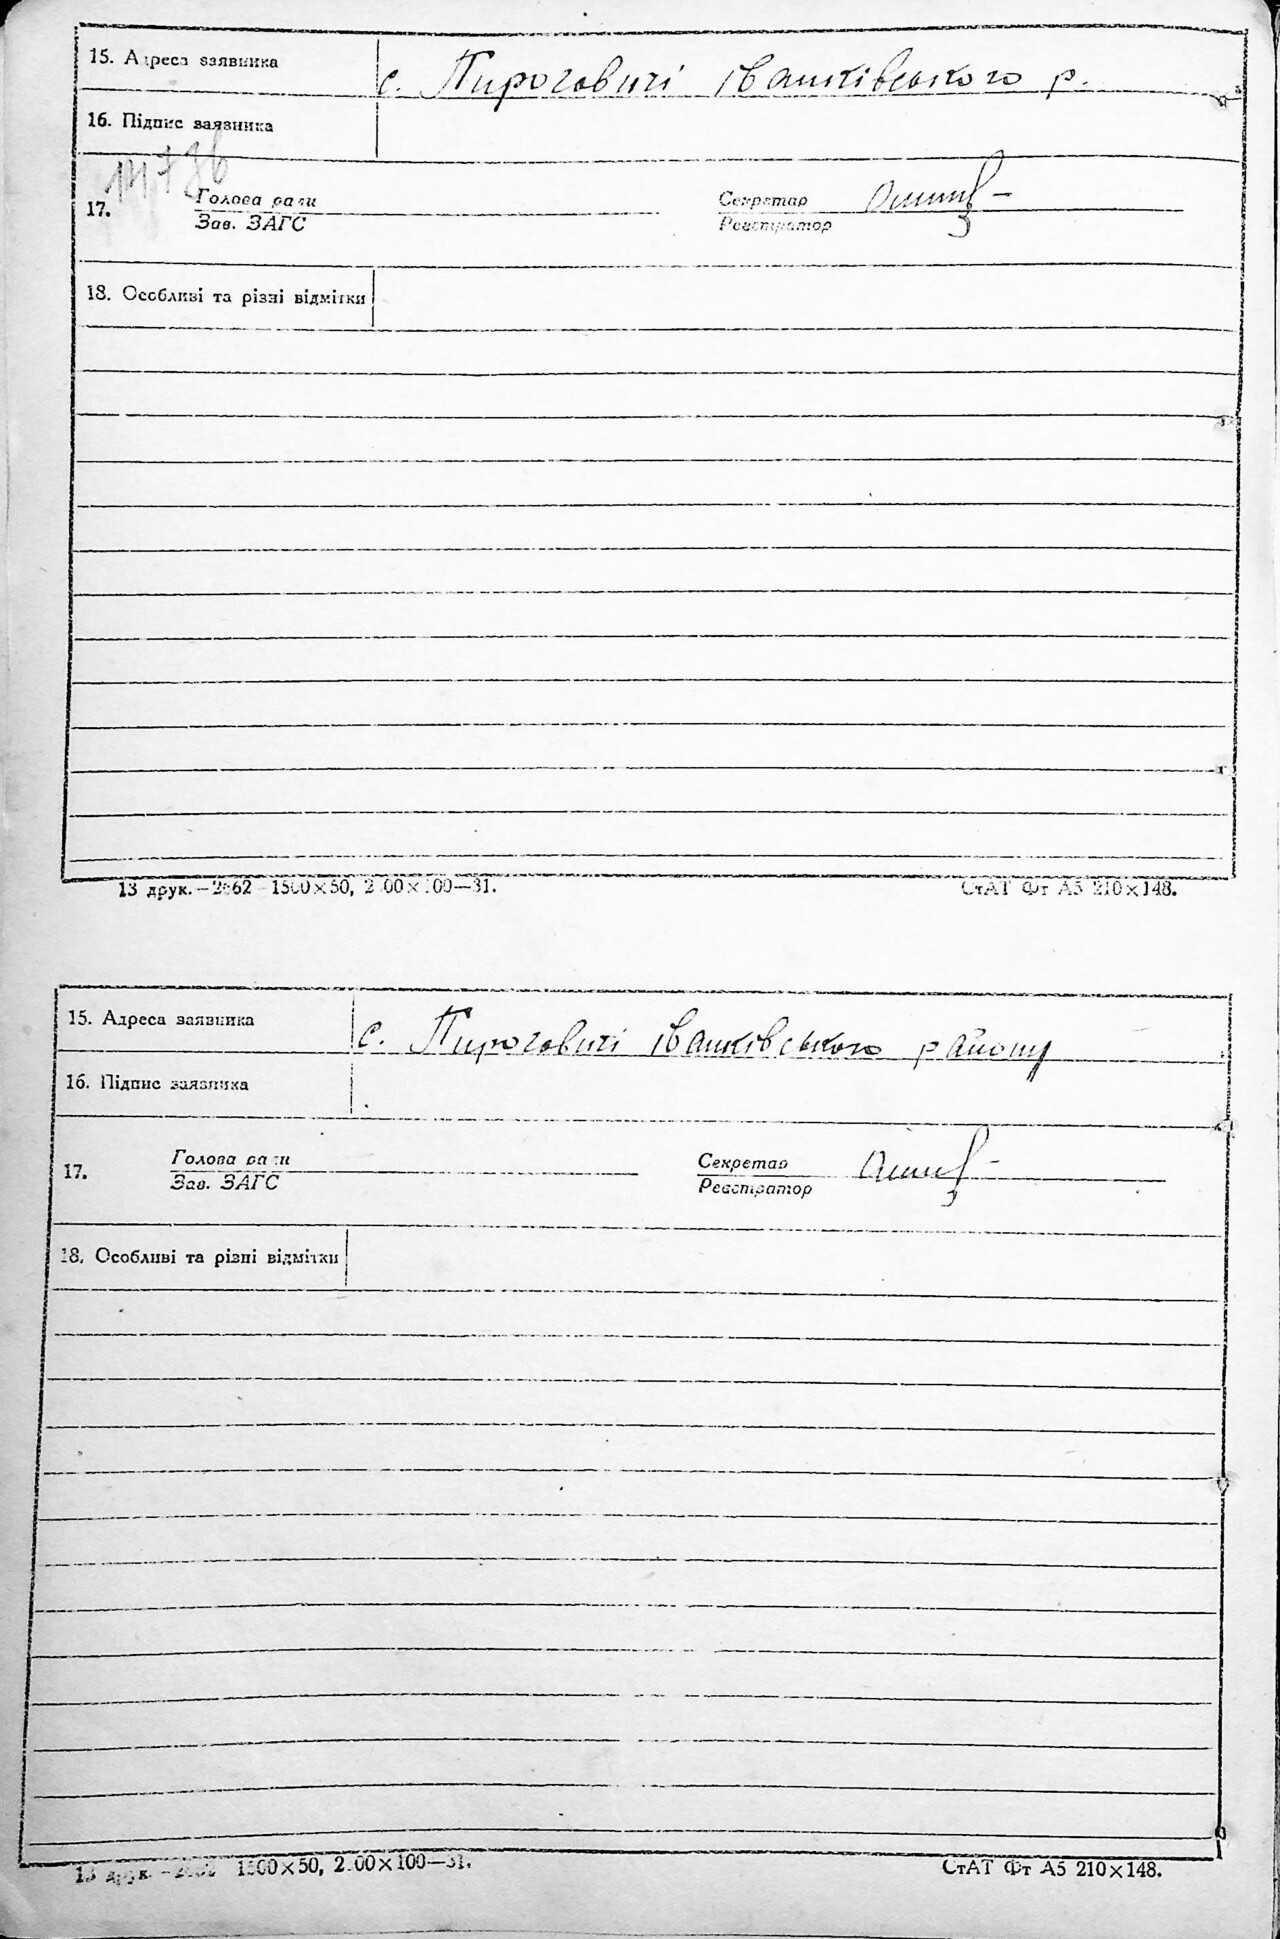 15. Адреса заявника с. Пироговичі іванківського р.
16. Підпис заявника
17. Голова ради Секретар
Зав. ЗАГС Реєстратор
18. Особливі та різні відмітки
13 друк.—2662 1500×50, 2 00×100—31. СтАТ Фт А5 210×148.
15. Адреса заявника с. Пироговичі іванківського району
16. Підпис заявника
17. Голова ради Секретар
Зав. ЗАГС Реєстратор
18. Особливі та різні відмітки
13 друк. 1500×50, 2.00×100—31. СтАТ Фт А5 210×148.